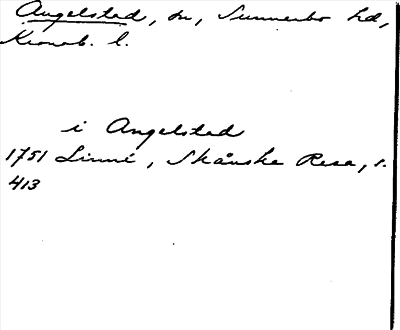 Angelstad, sn, Sunnerbo hd,
Kronob. l.
i Angelstad
1751 Linné, Skånska Resa, s.
413